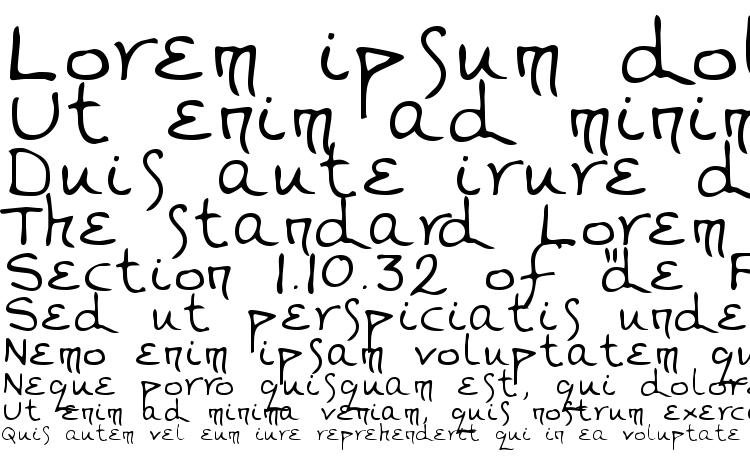 Lorem ipsum dol
Ut enim ad minim
Duis aute irure d
The standard Lorem
Section 1.10.32 of "de F
Sed ut perspiciatis unde
Nemo enim ipsam voluptatem qu
Neque porro quisquam est, qui dolor
Ut enim ad minima veniam, quis nostrum exerc
Quis autem vel eum iure reprehenderit qui in ea voluptate